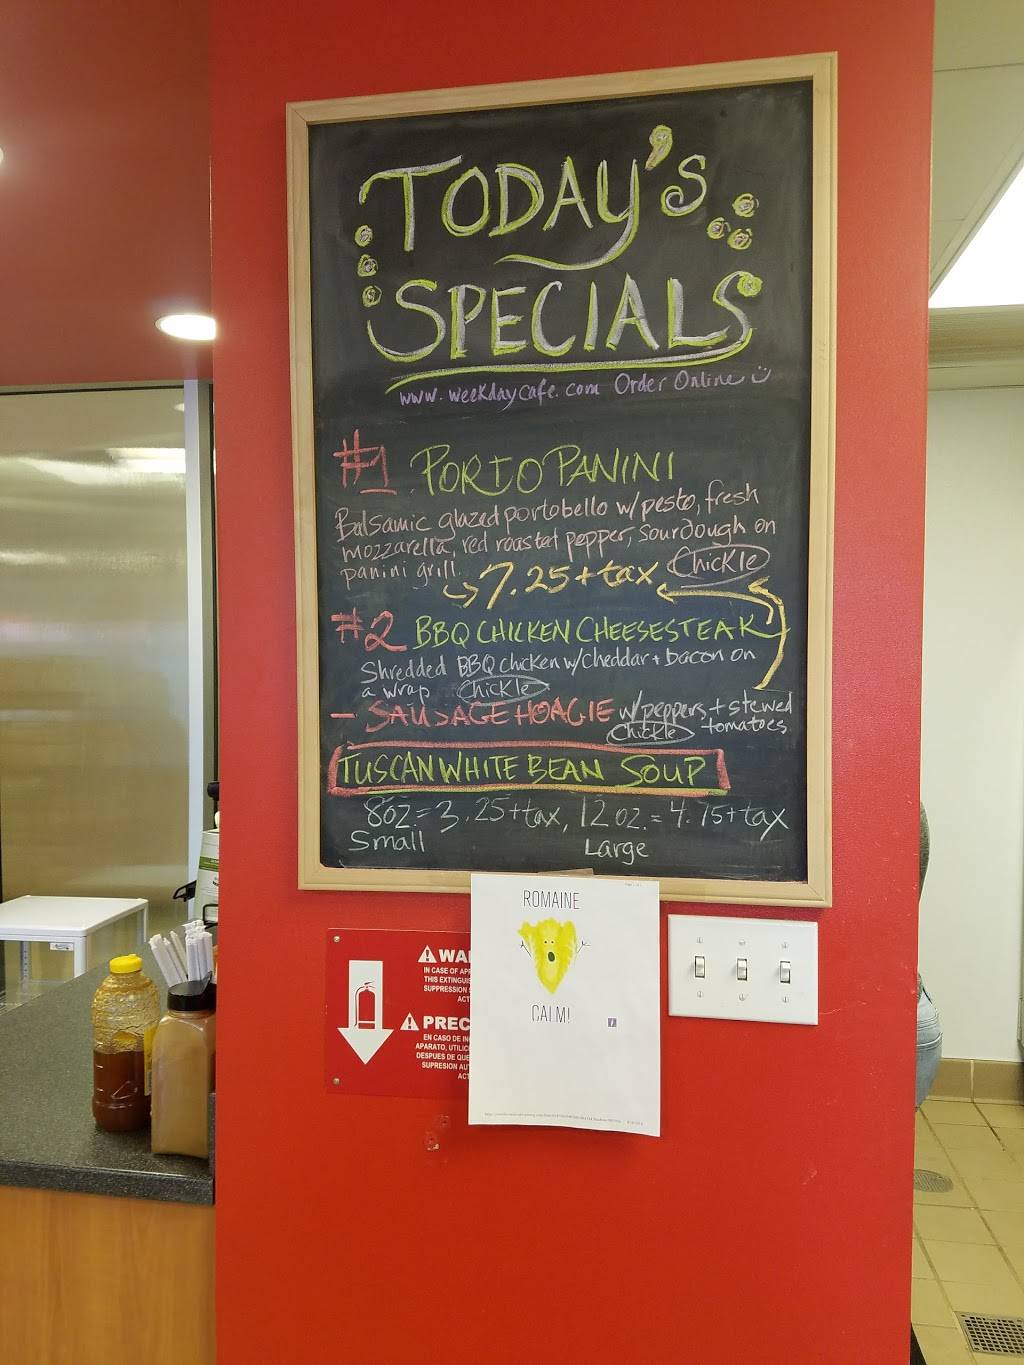 TODAY'S
SPECIALS
www.weekdaycafe.com Order Online
#1 PORTO PANINI
Balsamic glazed portobello w/ pesto, fresh
mozzarella, red roasted pepper, Sourdough on
panini grill. 7.25+tax Chickle
#2 BBQ CHICKEN CHEESESTEAK
Shredded BBQ chicken w/ cheddar + bacon on
a wrap Chickle
- SAUSAGE HOAGIE w/ peppers + stewed
Chickle tomatoes
TUSCAN WHITE BEAN SOUP
8oz.= 3.25+tax, 12 oz. = 4.75+tax
Small Large
ROMAINE
CALM!
WA
IN CASE OF
THIS EXTINGUI
SUPPRESSION
ACT
PREC
EN CASO DE
APARATO, UTILIC
DESPUES DE QUE
SUPRESION AU
ACT